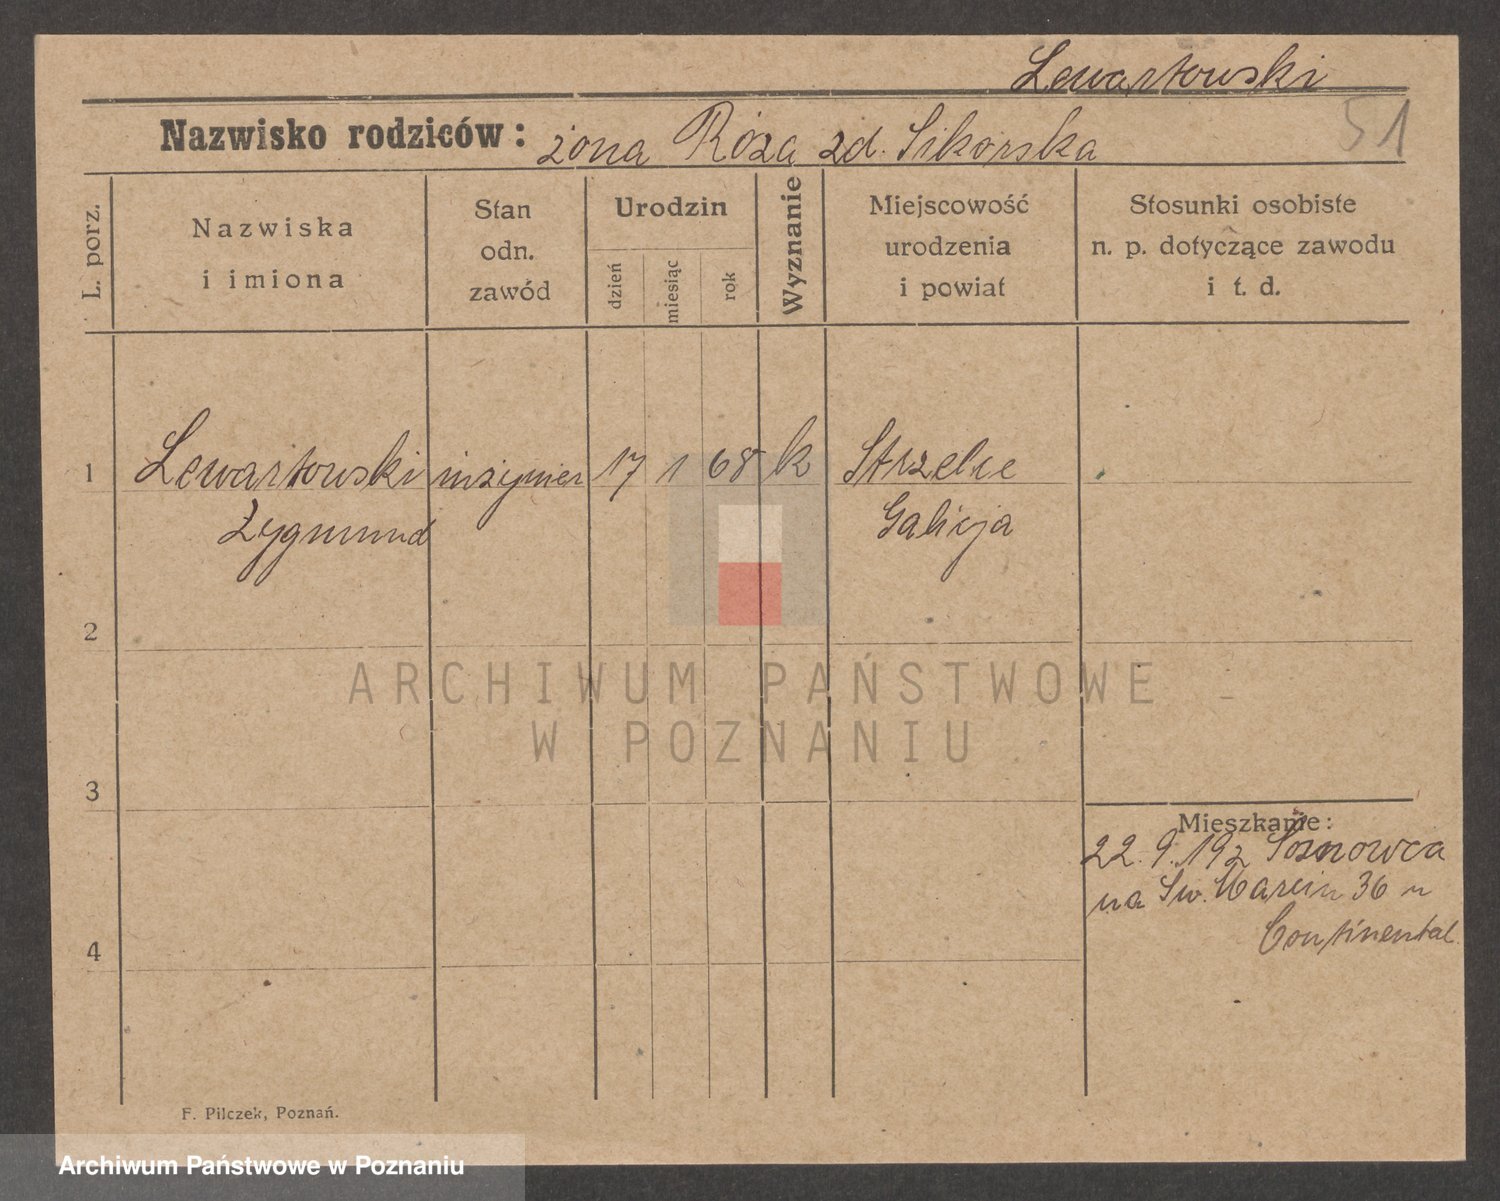 Lewartowski
51
Nazwisko rodziców: żona Róża zd. Sikorska
L. porz.
Nazwiska
i imiona
Stan
odn.
zawód
Urodzin
dzień
miesiąc
rok
Wyznanie
Miejscowość
urodzenia
i powiat
Stosunki osobiste
n. p. dotyczące zawodu
i t. d.
1 Lewartowski inżynier 17 1 68 k Strzelce
Zygmund Galicja
2
ARCHIWUM PAŃSTWOWE
W POZNANIU
3
Mieszkanie:
22. 9. 19 z Sosnowca
na Św. Marcin 36 u
Continental.
4
F. Pilczek, Poznań.
Archiwum Państwowe w Poznaniu